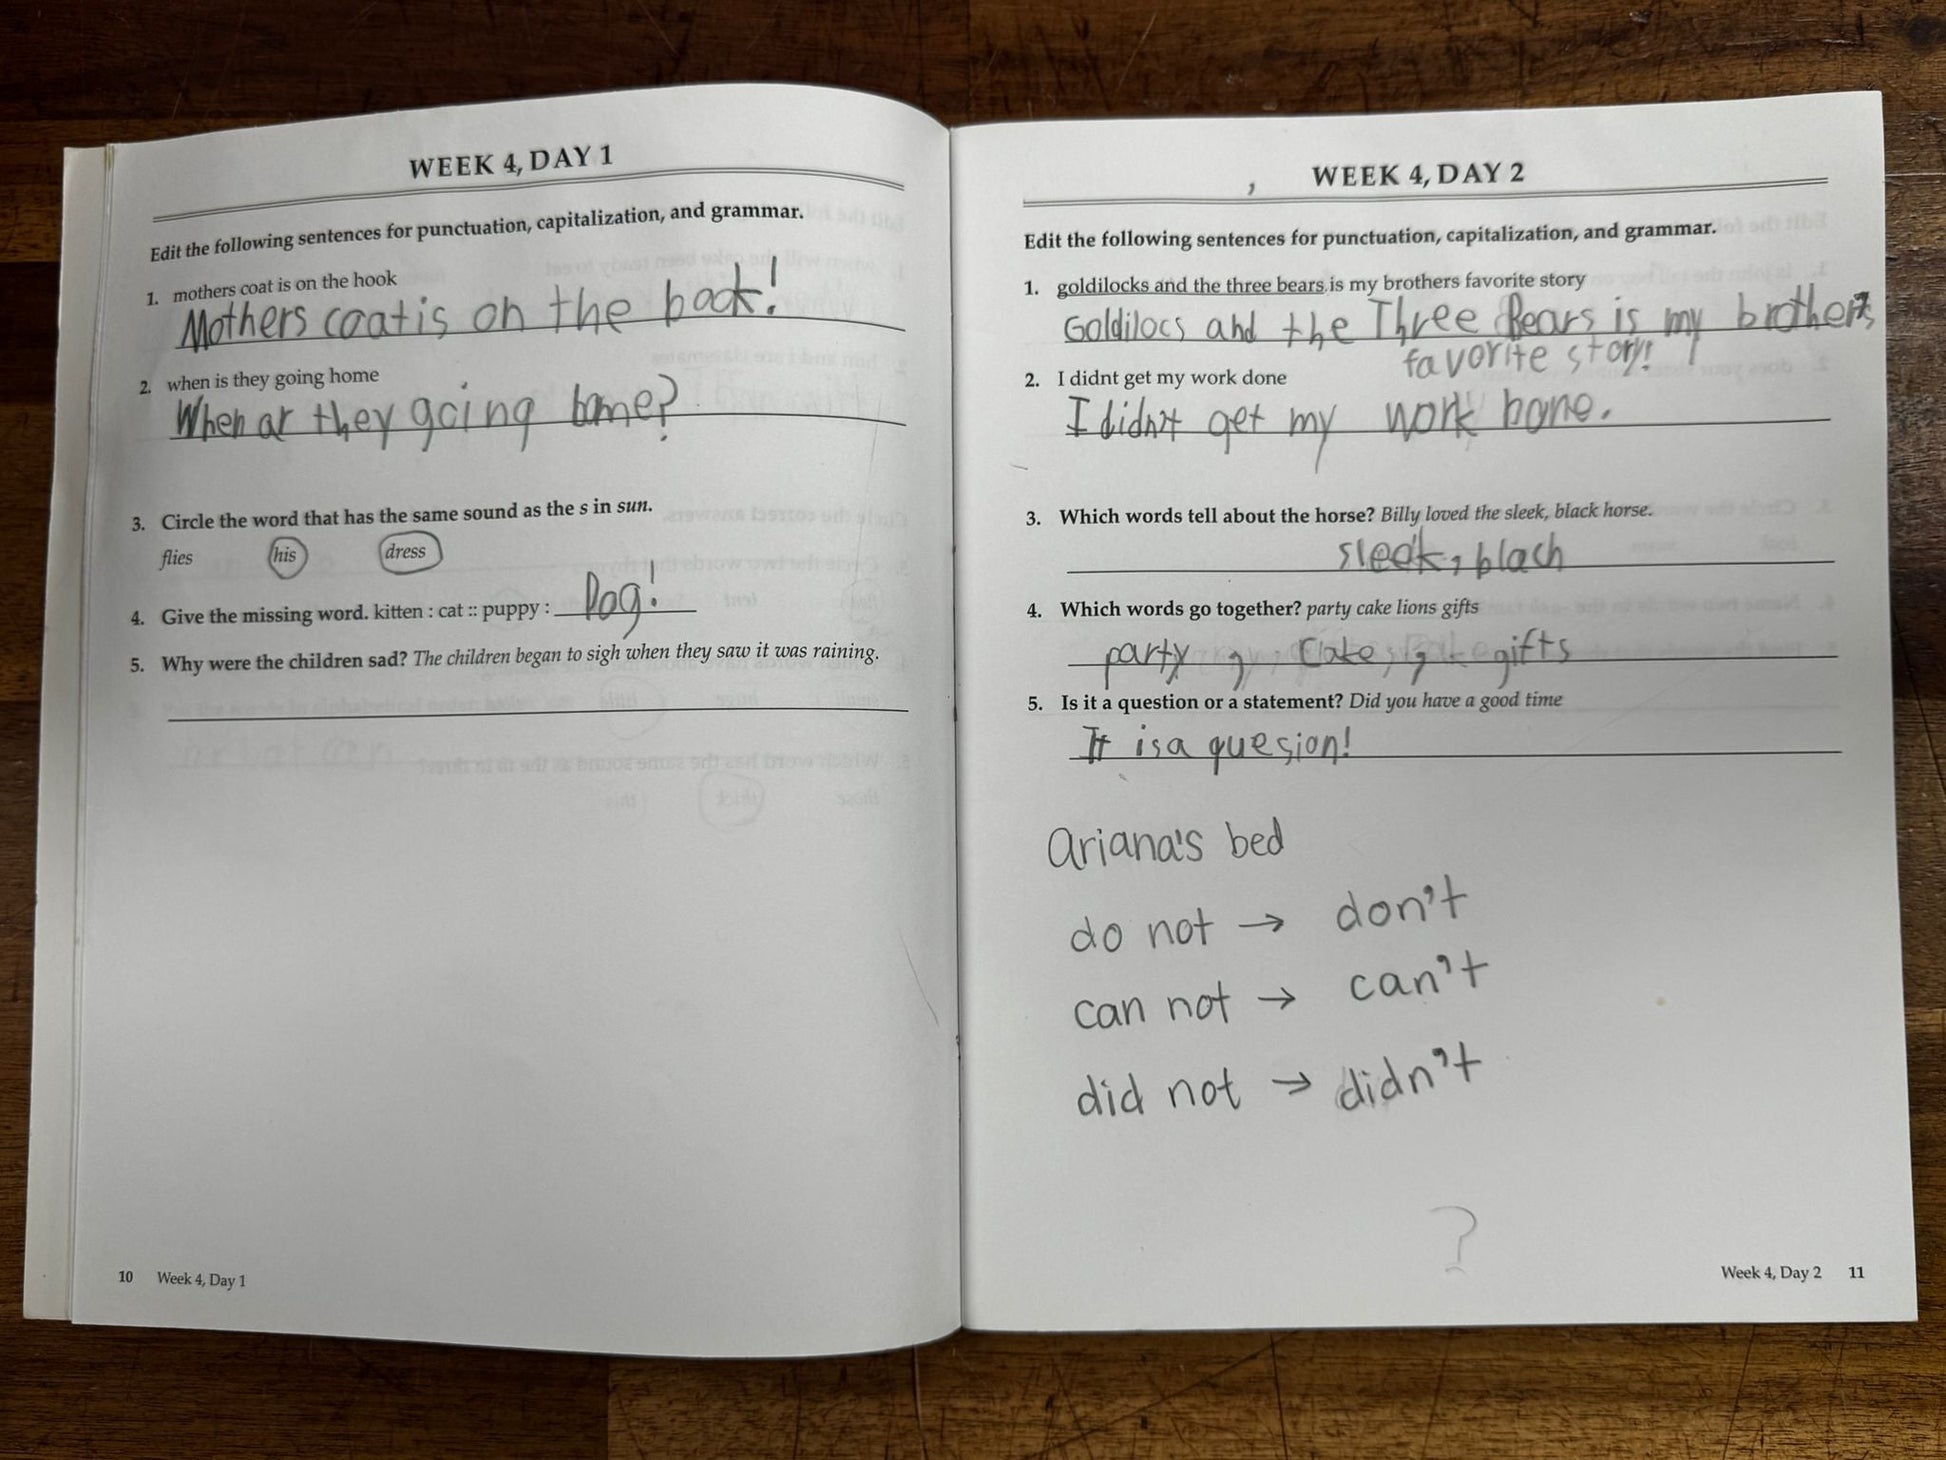 WEEK 4, DAY 1
Edit the following sentences for punctuation, capitalization, and grammar.
1. mothers coat is on the hook
Mothers coat is on the book!
2. when is they going home
When ar they going bome?
3. Circle the word that has the same sound as the s in sun.
flies his dress
4. Give the missing word. kitten : cat :: puppy : Dog!
5. Why were the children sad? The children began to sigh when they saw it was raining.
10 Week 4, Day 1
WEEK 4, DAY 2
Edit the following sentences for punctuation, capitalization, and grammar.
1. goldilocks and the three bears is my brothers favorite story
Goldilocs and the Three Bears is my brother's
favorite story!
2. I didnt get my work done
I didn't get my work bone.
3. Which words tell about the horse? Billy loved the sleek, black horse.
sleek, blach
4. Which words go together? party cake lions gifts
party , Cake, gifts
5. Is it a question or a statement? Did you have a good time
It is a quesion!
Ariana's bed
do not → don't
can not → can't
did not → didn't
?
Week 4, Day 2 11